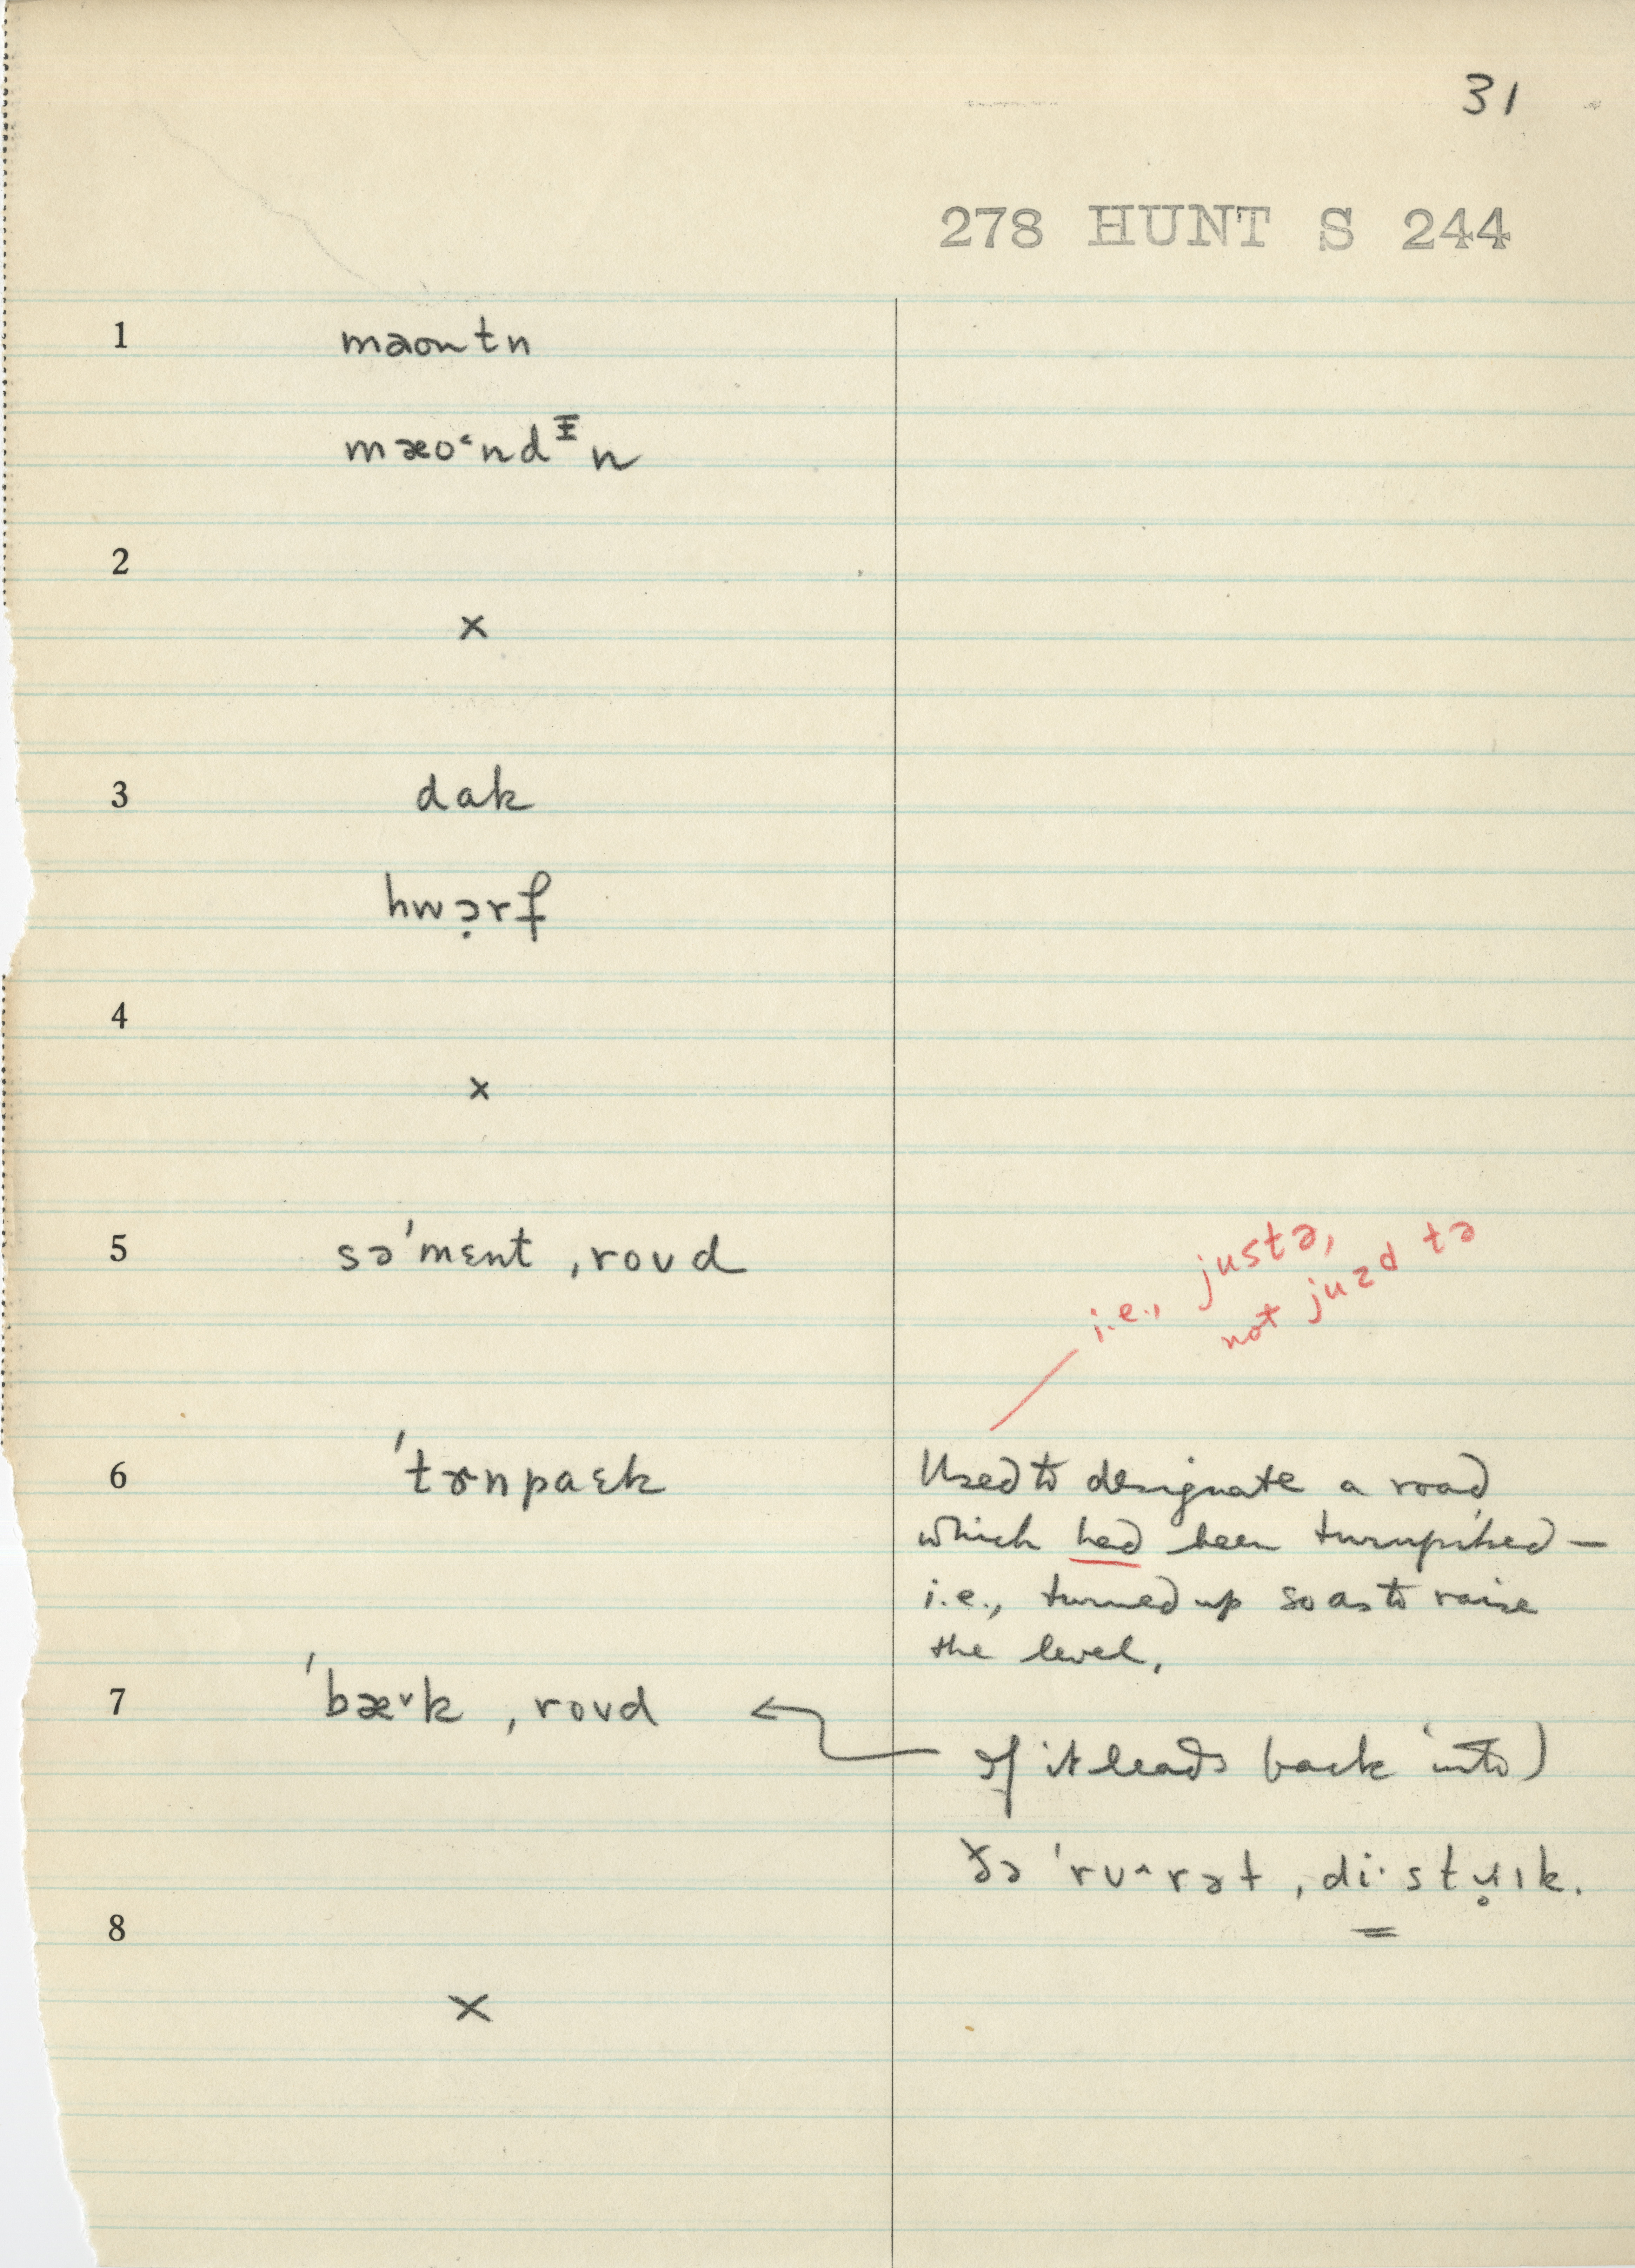 31
278 HUNT S 244
1 maontn
mæo˂ndᵻn
2
×
3 dak
hwɔ̣rf
4
×
5 sə'mɛnt ,roʊd
i.e., justə,
not juzd tə
6 'tɚnpaɛk
Used to designate a road
which had been turnpiked —
i.e., turned up so as to raise
the level.
7 'bæ˅k ,roʊd
If it leads back into)
ðə 'rʊ^rət ,di·stɹ̥ɪk.
8
×